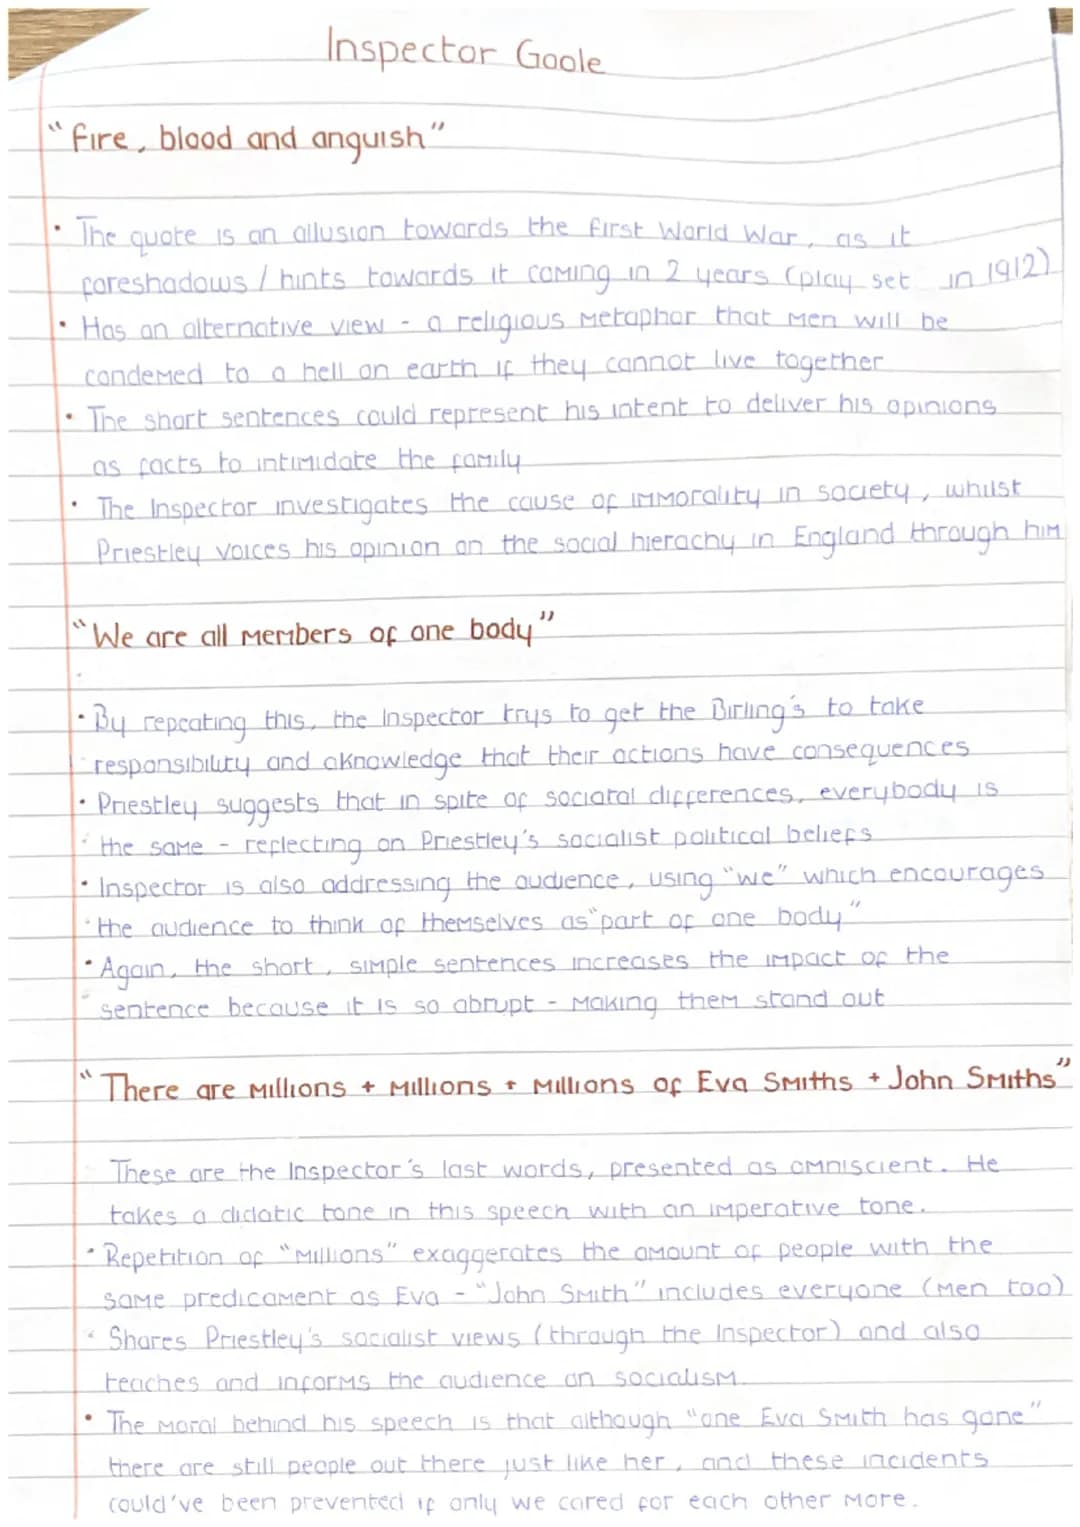 Inspector Goole
"fire, blood and anguish"
• The quote is an allusion towards the first World War, as it
foreshadows / hints towards it coming in 2 years (play set in 1912)
• Has an alternative view - a religious metaphor that men will be
condemed to a hell on earth if they cannot live together
• The short sentences could represent his intent to deliver his opinions
as facts to intimidate the family
• The Inspector investigates the cause of immorality in society, whilst
Priestley voices his opinion on the social hierachy in England through him
"We are all members of one body"
• By repeating this, the Inspector trys to get the Birling's to take
responsibility and aknowledge that their actions have consequences
• Priestley suggests that in spite of sociatal differences, everybody is
the same - reflecting on Priestley's socialist political beliefs
• Inspector is also addressing the audience, using "we" which encourages
the audience to think of themselves as "part of one body"
• Again, the short, simple sentences increases the impact of the
sentence because it is so abrupt - making them stand out
"There are millions + millions + millions of Eva Smiths + John Smiths"
These are the Inspector's last words, presented as omniscient. He
takes a didatic tone in this speech with an imperative tone.
• Repetition of "millions" exaggerates the amount of people with the
same predicament as Eva - "John Smith" includes everyone (men too)
• Shares Priestley's socialist views (through the Inspector) and also
teaches and informs the audience on socialism.
• The moral behind his speech is that although "one Eva Smith has gone"
there are still people out there just like her, and these incidents
could've been prevented if only we cared for each other more.